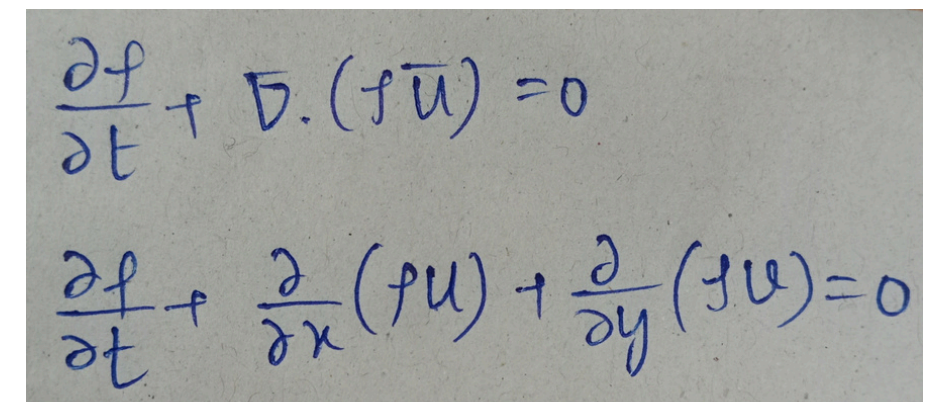 ∂ρ/∂t + ∇̅.(ρU̅) = 0
∂ρ/∂t + ∂/∂x (ρu) + ∂/∂y (ρv) = 0